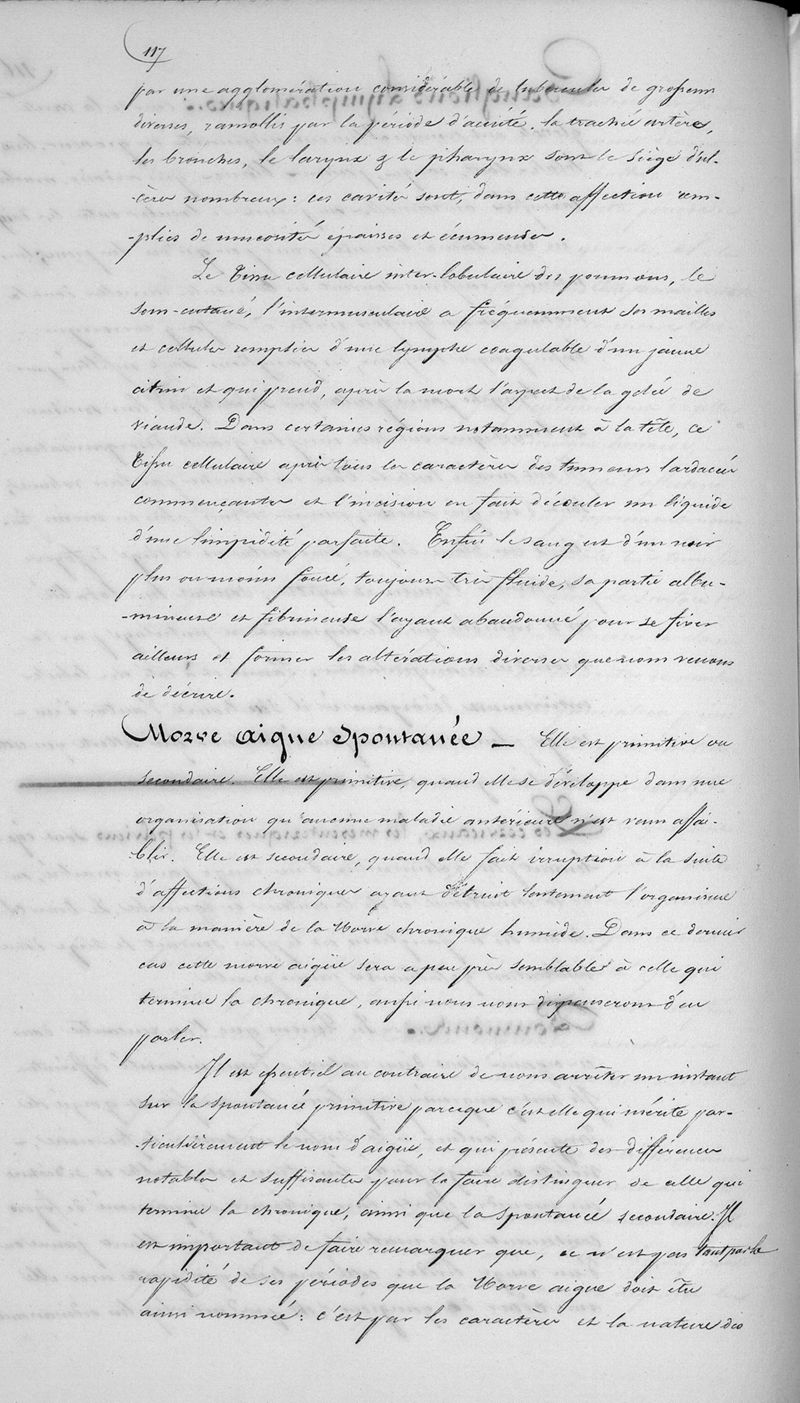 117
par une agglomération considérable de tubercules de grosseurs
diverses, ramollis par la période d'acuité. la trachée artère,
les bronches, le larynx & le pharynx sont le siège d'ul-
-cères nombreux: ces cavités sont, dans cette affection rem-
-plies de mucosités épaisses et écumeuses.
Le tissu cellulaire inter-lobulaire des poumons, le
sous-cutané, l'intermusculaire a fréquemment ses mailles
et cellules remplies d'une lymphe coagulable d'un jaune
citrin et qui prend, après la mort l'aspect de la gelée de
viande. Dans certaines régions notamment à la tête, ce
tissu cellulaire a pris tous les caractères des tumeurs lardacées
commençantes et l'incision en fait découler un liquide
d'une limpidité parfaite. Enfin le sang est d'un noir
plus ou moins foncé, toujours très fluide, sa partie albu-
-mineuse et fibrineuse l'ayant abandonné pour se fixer
ailleurs et former les altérations diverses que nous venons
de décrire.
Morve aigue Spontanée — Elle est primitive ou
secondaire. Elle est primitive, quand elle se développe dans une
organisation qu'aucune maladie antérieure n'est venu affai-
-blir. Elle est secondaire, quand elle fait irruption à la suite
d'affections chroniques ayant détruit lentement l'organisme
à la manière de la Morve chronique humide. Dans ce dernier
cas cette morve aigüe sera a peu près semblable à celle qui
termine la chronique, aussi nous nous dispenserons d'en
parler.
Il est essentiel au contraire de nous arrêter un instant
sur la spontanée primitive parceque c'est elle qui mérite par-
-ticulièrement le nom d'aigüe, et qui présente des différences
notables et suffisantes pour la faire distinguer de celle qui
termine la chronique, ainsi que la spontanée secondaire. Il
est important de faire remarquer que, ce n'est pas tant par la
rapidité de ses périodes que la Morve aigue doit être
ainsi nommée: c'est par les caractères et la nature des